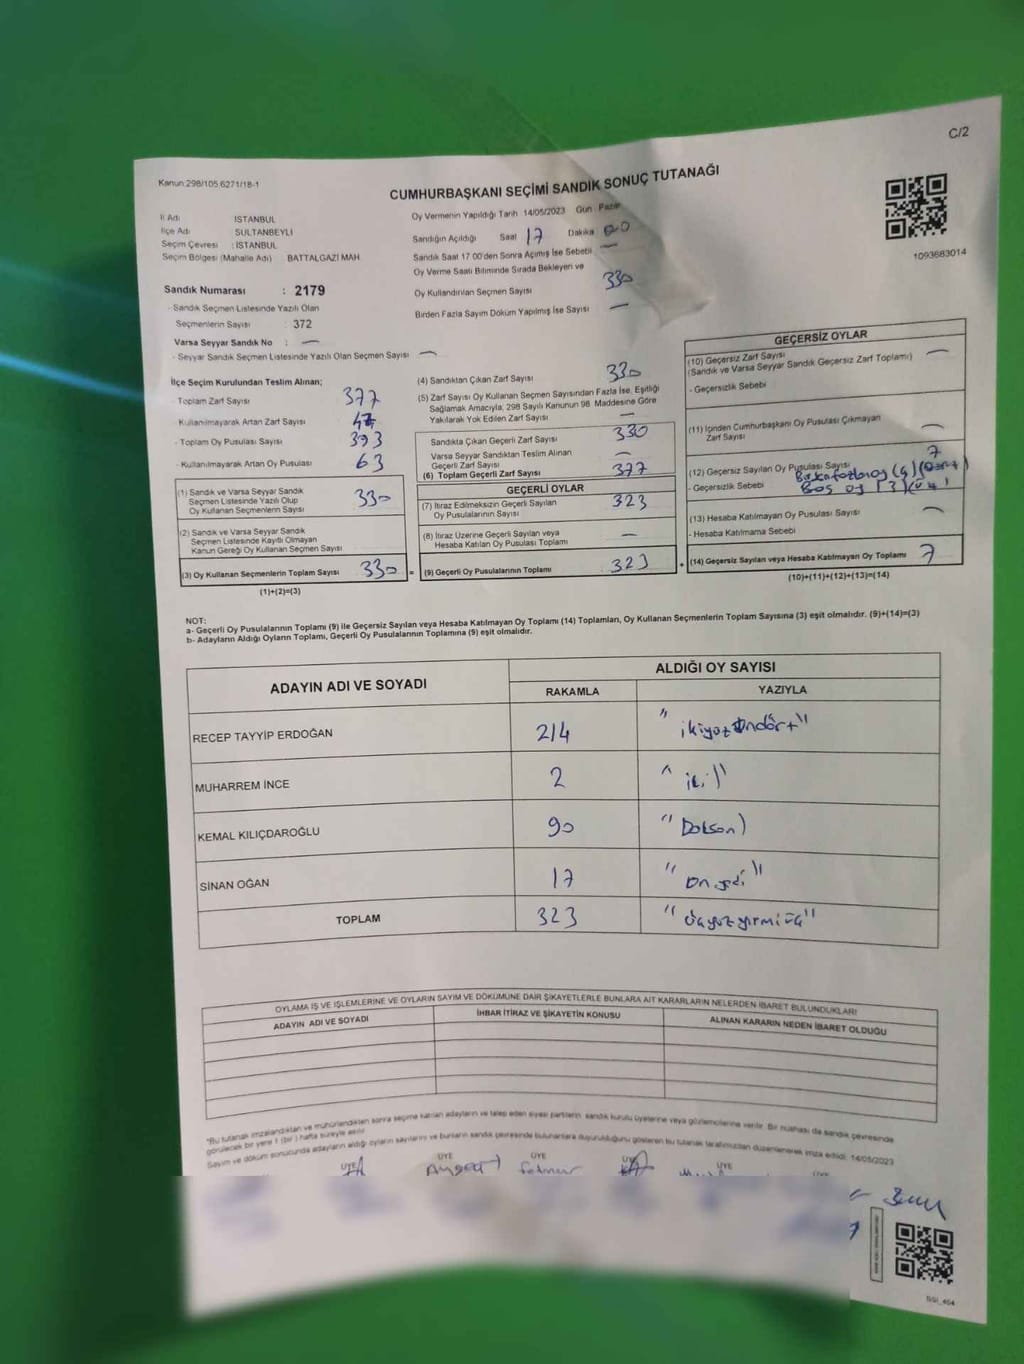 C/2
Kanun:298/105,6271/18-1
CUMHURBAŞKANI SEÇİMİ SANDIK SONUÇ TUTANAĞI
1093683014
İl Adı İSTANBUL
İlçe Adı SULTANBEYLİ
Seçim Çevresi : İSTANBUL
Seçim Bölgesi (Mahalle Adı) BATTALGAZİ MAH.
Sandık Numarası : 2179
- Sandık Seçmen Listesinde Yazılı Olan
Seçmenlerin Sayısı : 372
Varsa Seyyar Sandık No : —
- Seyyar Sandık Seçmen Listesinde Yazılı Olan Seçmen Sayısı —
Oy Vermenin Yapıldığı Tarih 14/05/2023 Gün Pazar
Sandığın Açıldığı Saat 17 Dakika 00
Sandık Saat 17 00'den Sonra Açımış İse Sebebi —
Oy Verme Saati Bitiminde Sırada Bekleyen ve
Oy Kullandırılan Seçmen Sayısı 330
Birden Fazla Sayım Döküm Yapılmış İse Sayısı —
İlçe Seçim Kurulundan Teslim Alınan;
- Toplam Zarf Sayısı 377
- Kullanılmayarak Artan Zarf Sayısı 47
- Toplam Oy Pusulası Sayısı 393
- Kullanılmayarak Artan Oy Pusulası 63
(1) Sandık ve Varsa Seyyar Sandık
Seçmen Listesinde Yazılı Olup
Oy Kullanan Seçmenlerin Sayısı 330
(2) Sandık ve Varsa Seyyar Sandık
Seçmen Listesinde Kayıtlı Olmayan
Kanun Gereği Oy Kullanan Seçmen Sayısı
(3) Oy Kullanan Seçmenlerin Toplam Sayısı 330 =
(1)+(2)=(3)
(4) Sandıktan Çıkan Zarf Sayısı 330
(5) Zarf Sayısı Oy Kullanan Seçmen Sayısından Fazla İse, Eşitliği
Sağlamak Amacıyla, 298 Sayılı Kanunun 98. Maddesine Göre
Yakılarak Yok Edilen Zarf Sayısı —
Sandıkta Çıkan Geçerli Zarf Sayısı 330
Varsa Seyyar Sandıktan Teslim Alınan
Geçerli Zarf Sayısı —
(6) Toplam Geçerli Zarf Sayısı 377
GEÇERLİ OYLAR
(7) İtiraz Edilmeksizin Geçerli Sayılan
Oy Pusulalarının Sayısı 323
(8) İtiraz Üzerine Geçerli Sayılan veya
Hesaba Katılan Oy Pusulası Toplamı —
(9) Geçerli Oy Pusulalarının Toplamı 323 +
GEÇERSİZ OYLAR
(10) Geçersiz Zarf Sayısı
(Sandık ve Varsa Seyyar Sandık Geçersiz Zarf Toplamı) —
- Geçersizlik Sebebi
(11) İçinden Cumhurbaşkanı Oy Pusulası Çıkmayan
Zarf Sayısı —
(12) Geçersiz Sayılan Oy Pusulası Sayısı 7
- Geçersizlik Sebebi
Boş oy (3)
(13) Hesaba Katılmayan Oy Pusulası Sayısı —
- Hesaba Katılmama Sebebi
(14) Geçersiz Sayılan veya Hesaba Katılmayan Oy Toplamı 7
(10)+(11)+(12)+(13)=(14)
NOT:
a- Geçerli Oy Pusulalarının Toplamı (9) ile Geçersiz Sayılan veya Hesaba Katılmayan Oy Toplamı (14) Toplamları, Oy Kullanan Seçmenlerin Toplam Sayısına (3) eşit olmalıdır. (9)+(14)=(3)
b- Adayların Aldığı Oyların Toplamı, Geçerli Oy Pusulalarının Toplamına (9) eşit olmalıdır.
ADAYIN ADI VE SOYADI ALDIĞI OY SAYISI
RAKAMLA YAZIYLA
RECEP TAYYİP ERDOĞAN 214 "ikiyüzondört"
MUHARREM İNCE 2 "iki"
KEMAL KILIÇDAROĞLU 90 "Doksan)
SİNAN OĞAN 17 "onyedi"
TOPLAM 323 "üçyüzyirmiüç"
OYLAMA İŞ VE İŞLEMLERİNE VE OYLARIN SAYIM VE DÖKÜMÜNE DAİR ŞİKAYETLERLE BUNLARA AİT KARARLARIN NELERDEN İBARET BULUNDUKLARI
ADAYIN ADI VE SOYADI İHBAR İTİRAZ VE ŞİKAYETİN KONUSU ALINAN KARARIN NEDEN İBARET OLDUĞU
*Bu tutanak imzalandıktan ve mühürlendikten sonra seçime katılan adayların ve talep eden siyasi partilerin sandık kurulu üyelerine veya gözlemcilerine verilir. Bir nüshası da sandık çevresinde
görülecek bir yere 1 (bir) hafta süreyle asılır.
Sayım ve döküm sonucunda adayların aldığı oyların sayılarını ve bunların sandık çevresinde bulunanlara duyurulduğunu gösteren bu tutanak tarafımızdan düzenlenerek imza edildi. 14/05/2023
ÜYE ÜYE ÜYE ÜYE ÜYE